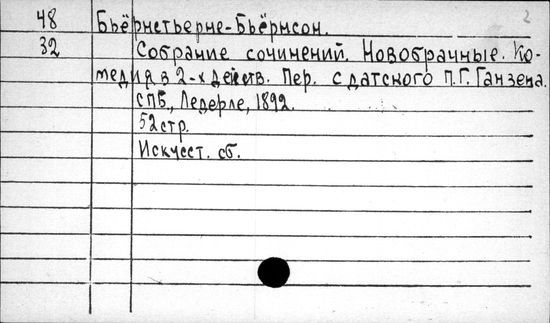 48 Бьёрнстьерне-Бьёрнсон. 2
32 Собрание сочинений. Новобрачные. Ко-
медия в 2-х действ. Пер. с датского П.Г. Ганзена.
СПБ., Ледерле, 1892.
52 стр.
Искусст. сб.